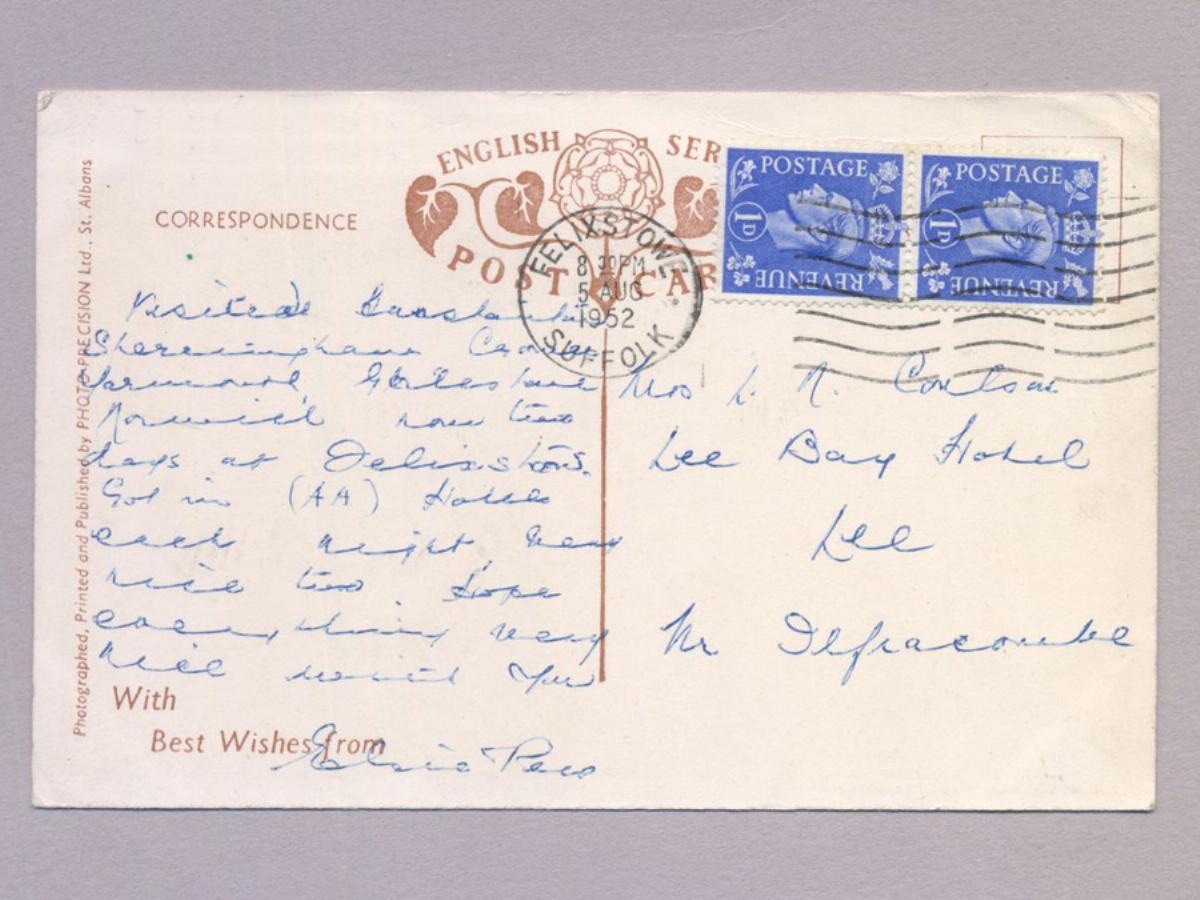 ENGLISH SER
POST CAR
CORRESPONDENCE
Photographed, Printed and Published by PHOTO PRECISION Ltd., St. Albans
POSTAGE
1D
REVENUE
POSTAGE
1D
REVENUE
FELIXSTOWE
8 30 PM
5 AUG
1952
SUFFOLK
Visited
Shereingham Cromer
Yarmouth
Norwich now two
days at Felixstowe.
Got in (AA) Hotels
each night very
nice too Hope
everything very
nice with you
With
Best Wishes from
Elsie
Mrs L. N. Coulson
Lee Bay Hotel
Lee
Nr Ilfracombe